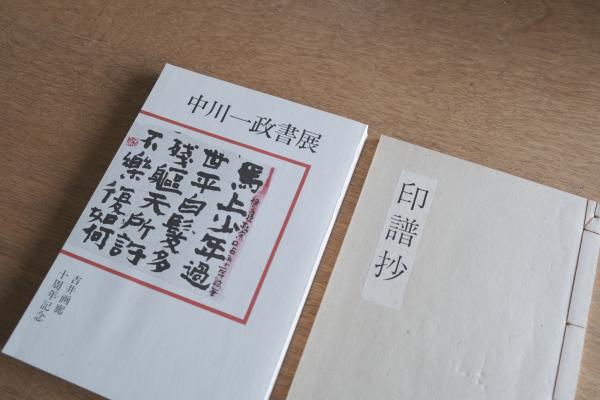 中川一政書展
馬上少年過
世平白髪多
残軀天所許
不樂復如何
吉井画廊
十周年記念
印譜抄